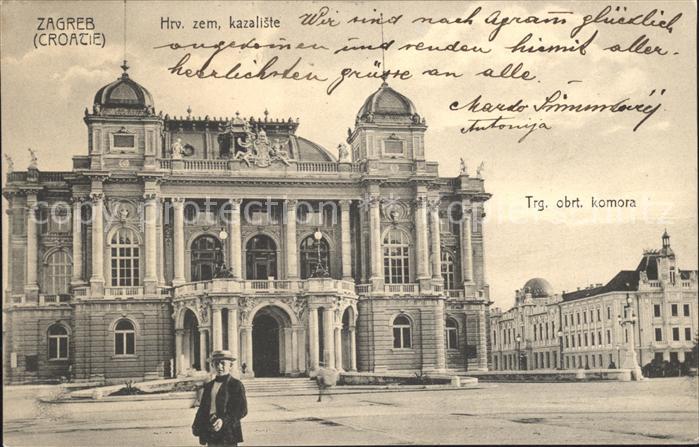 ZAGREB
(CROATIE)
Hrv. zem. kazalište
Wir sind nach Agram glücklich
angekommen und senden hiemit aller-
herzlichsten grüsse an alle.
Marko
Antonija
Trg. obrt. komora